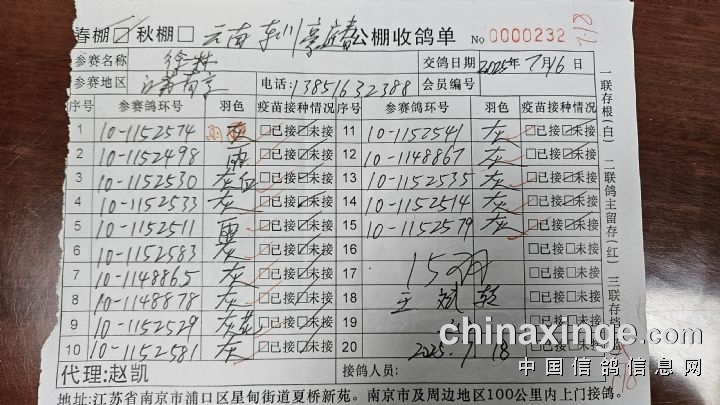 春棚☑ 秋棚☐ 云南东川 公棚收鸽单 No 0000232
参赛名称 徐林 交鸽日期 2025年7月16日
参赛地区 江苏南京 电话:13851632388 会员编号
序号 参赛鸽环号 羽色 疫苗接种情况 序号 参赛鸽环号 羽色 疫苗接种情况
1 10-1152574 灰 ☐已接☑未接 11 10-1152541 灰 ☐已接☑未接
2 10-1152498 雨 ☐已接☑未接 12 10-1148867 灰 ☐已接☑未接
3 10-1152530 灰白 ☐已接☑未接 13 10-1152535 灰 ☐已接☑未接
4 10-1152533 灰 ☐已接☑未接 14 10-1152514 灰 ☐已接☑未接
5 10-1152511 ☐已接☑未接 15 10-1152579 灰 ☐已接☑未接
6 10-1152583 灰 ☐已接☑未接 16 ☐已接☐未接
7 10-1148865 灰 ☐已接☑未接 17 15羽 ☐已接☐未接
8 10-1148878 灰 ☐已接☑未接 18 王斌 ☐已接☐未接
9 10-1152529 灰花 ☐已接☑未接 19
10 10-1152581 灰 ☐已接☑未接 20 2025.7.18
代理:赵凯 接鸽人员:
地址:江苏省南京市浦口区星甸街道夏桥新苑。南京市及周边地区100公里内上门接鸽。
一联存根(白) 二联鸽主留存(红) 三联存档
chinaxinge.com
中国信鸽信息网